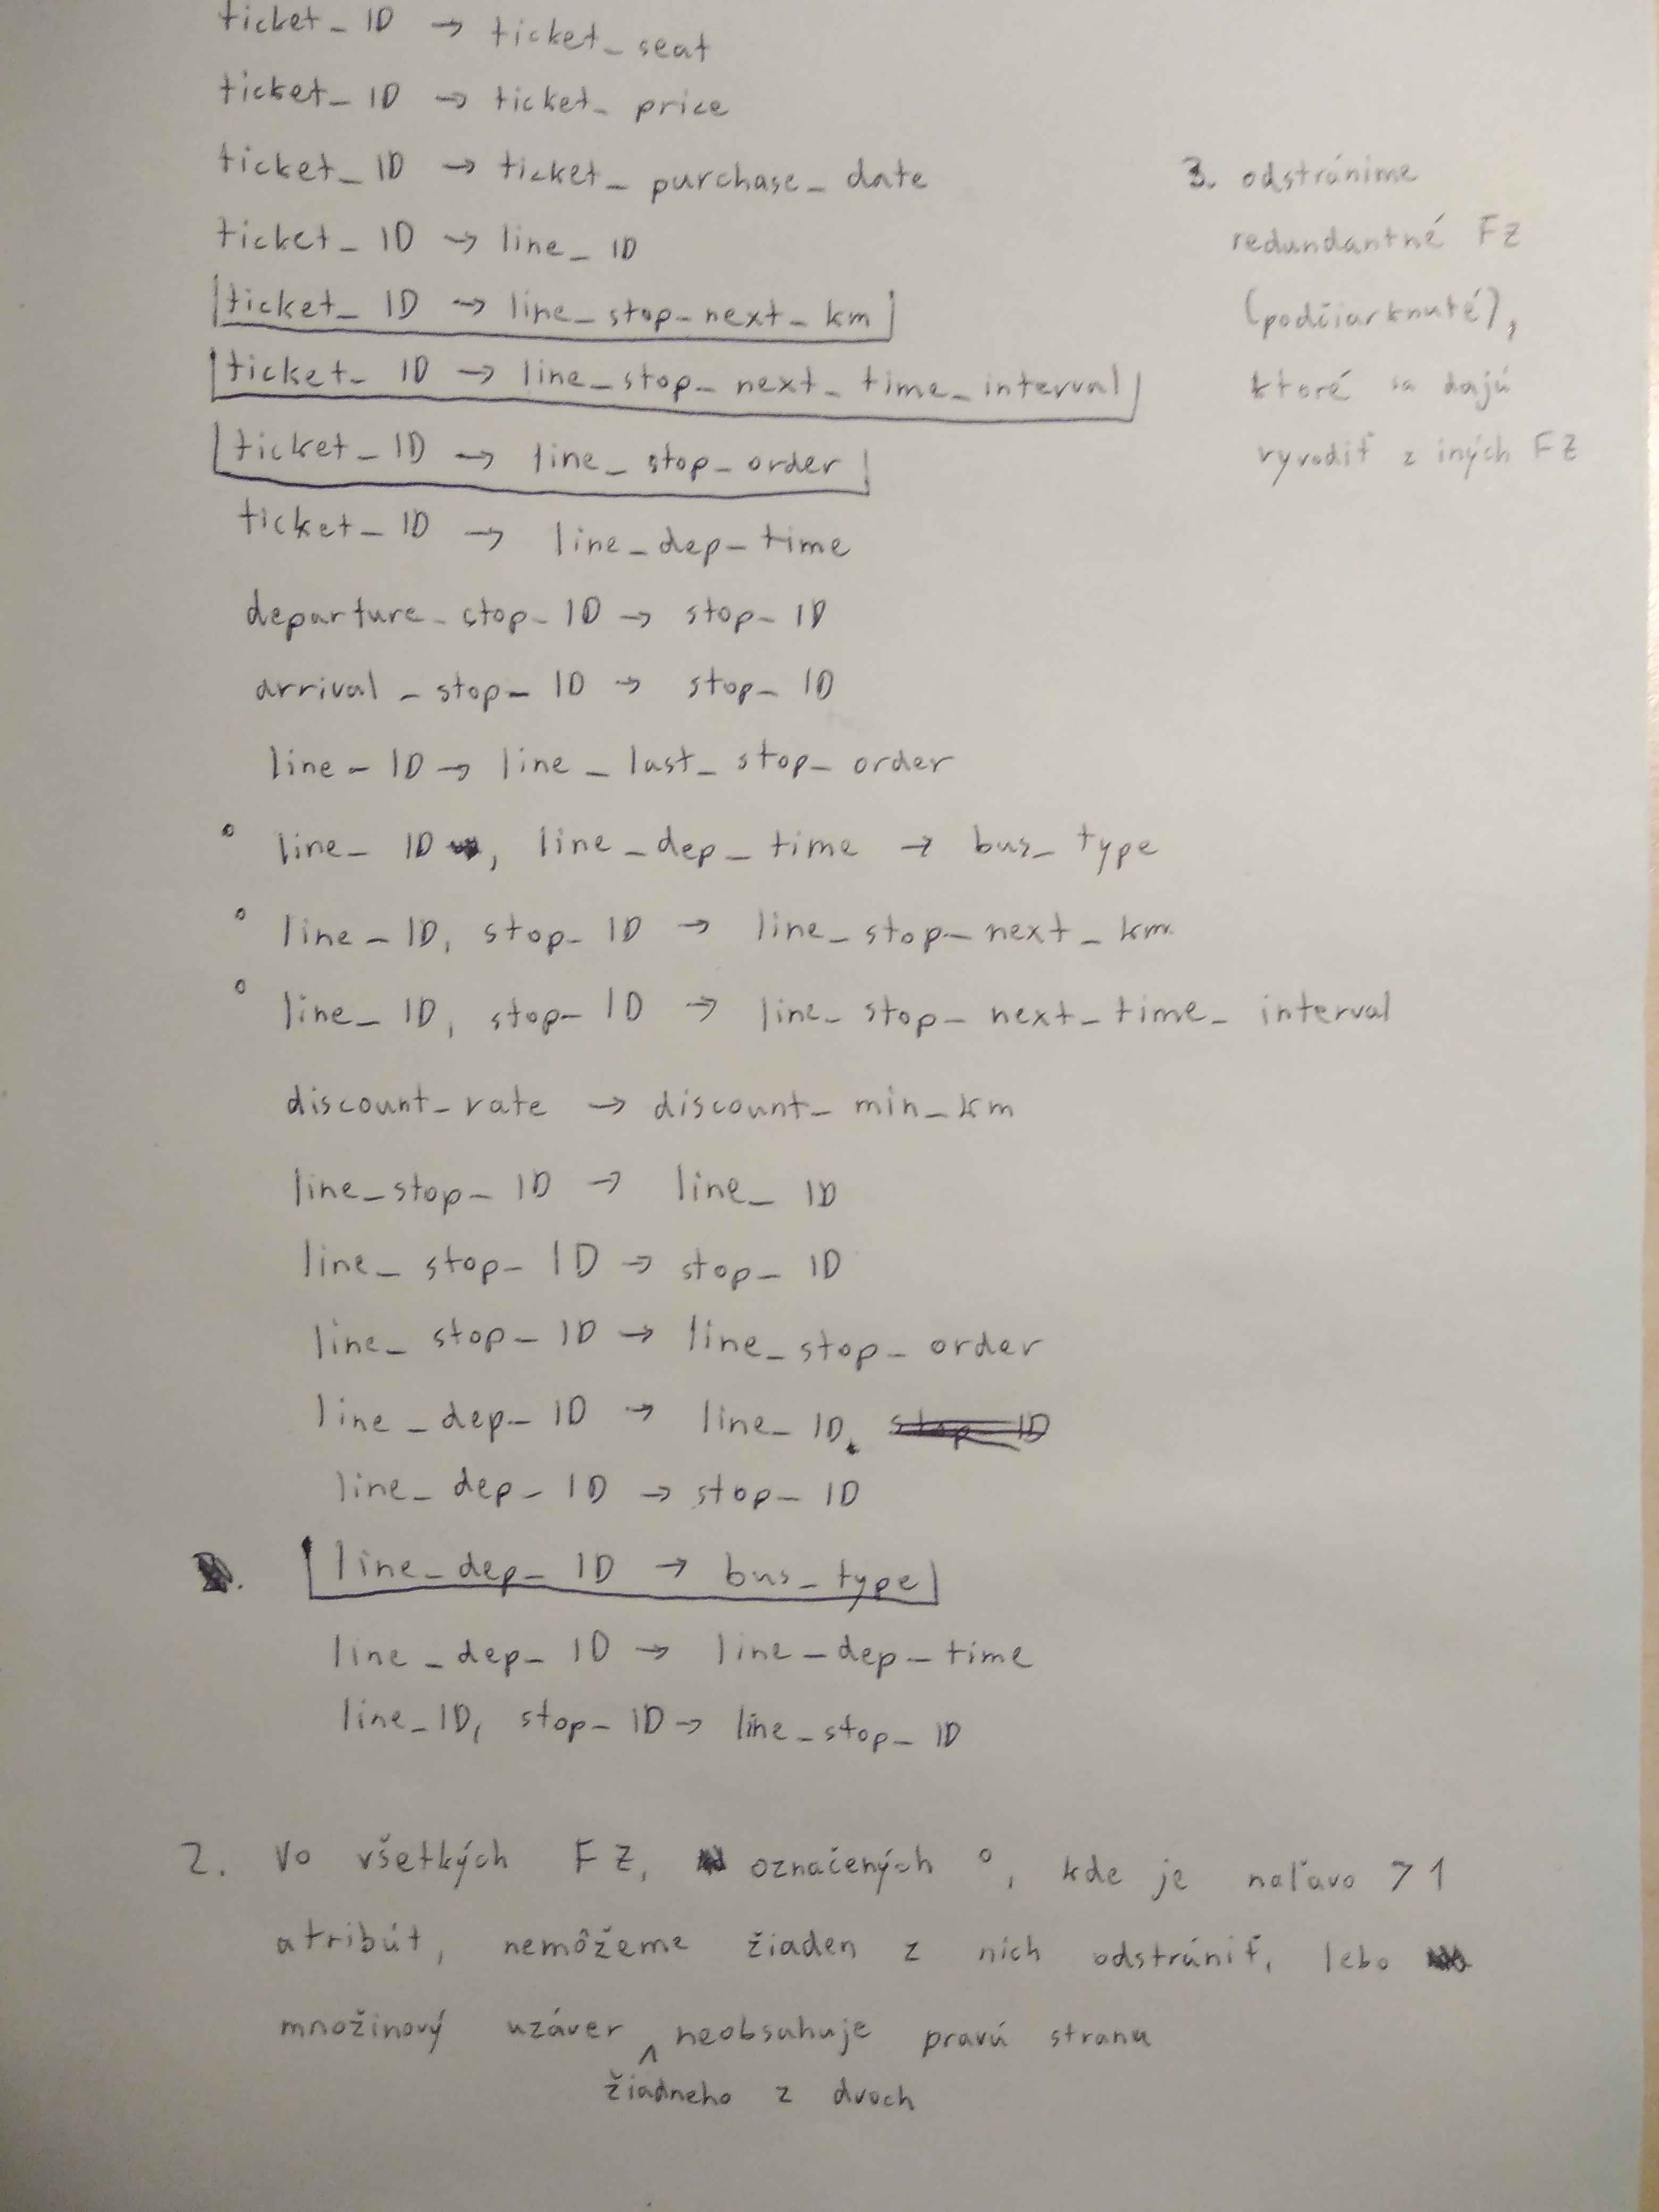 ticket_ID → ticket_seat
ticket_ID → ticket_price
ticket_ID → ticket_purchase_date
ticket_ID → line_ID
ticket_ID → line_stop_next_km
ticket_ID → line_stop_next_time_interval
ticket_ID → line_stop_order
ticket_ID → line_dep_time
departure_stop_ID → stop_ID
arrival_stop_ID → stop_ID
line_ID → line_last_stop_order
° line_ID, line_dep_time → bus_type
° line_ID, stop_ID → line_stop_next_km
° line_ID, stop_ID → line_stop_next_time_interval
discount_rate → discount_min_km
line_stop_ID → line_ID
line_stop_ID → stop_ID
line_stop_ID → line_stop_order
line_dep_ID → line_ID, stop_ID
line_dep_ID → stop_ID
line_dep_ID → bus_type
line_dep_ID → line_dep_time
line_ID, stop_ID → line_stop_ID
3. odstránime
redundantné FZ
(podčiarknuté),
ktoré sa dajú
vyvodiť z iných FZ
2. Vo všetkých FZ, označených °, kde je naľavo > 1
atribút, nemôžeme žiaden z nich odstrániť, lebo
množinový uzáver ^ neobsahuje pravú stranu
žiadneho z dvoch